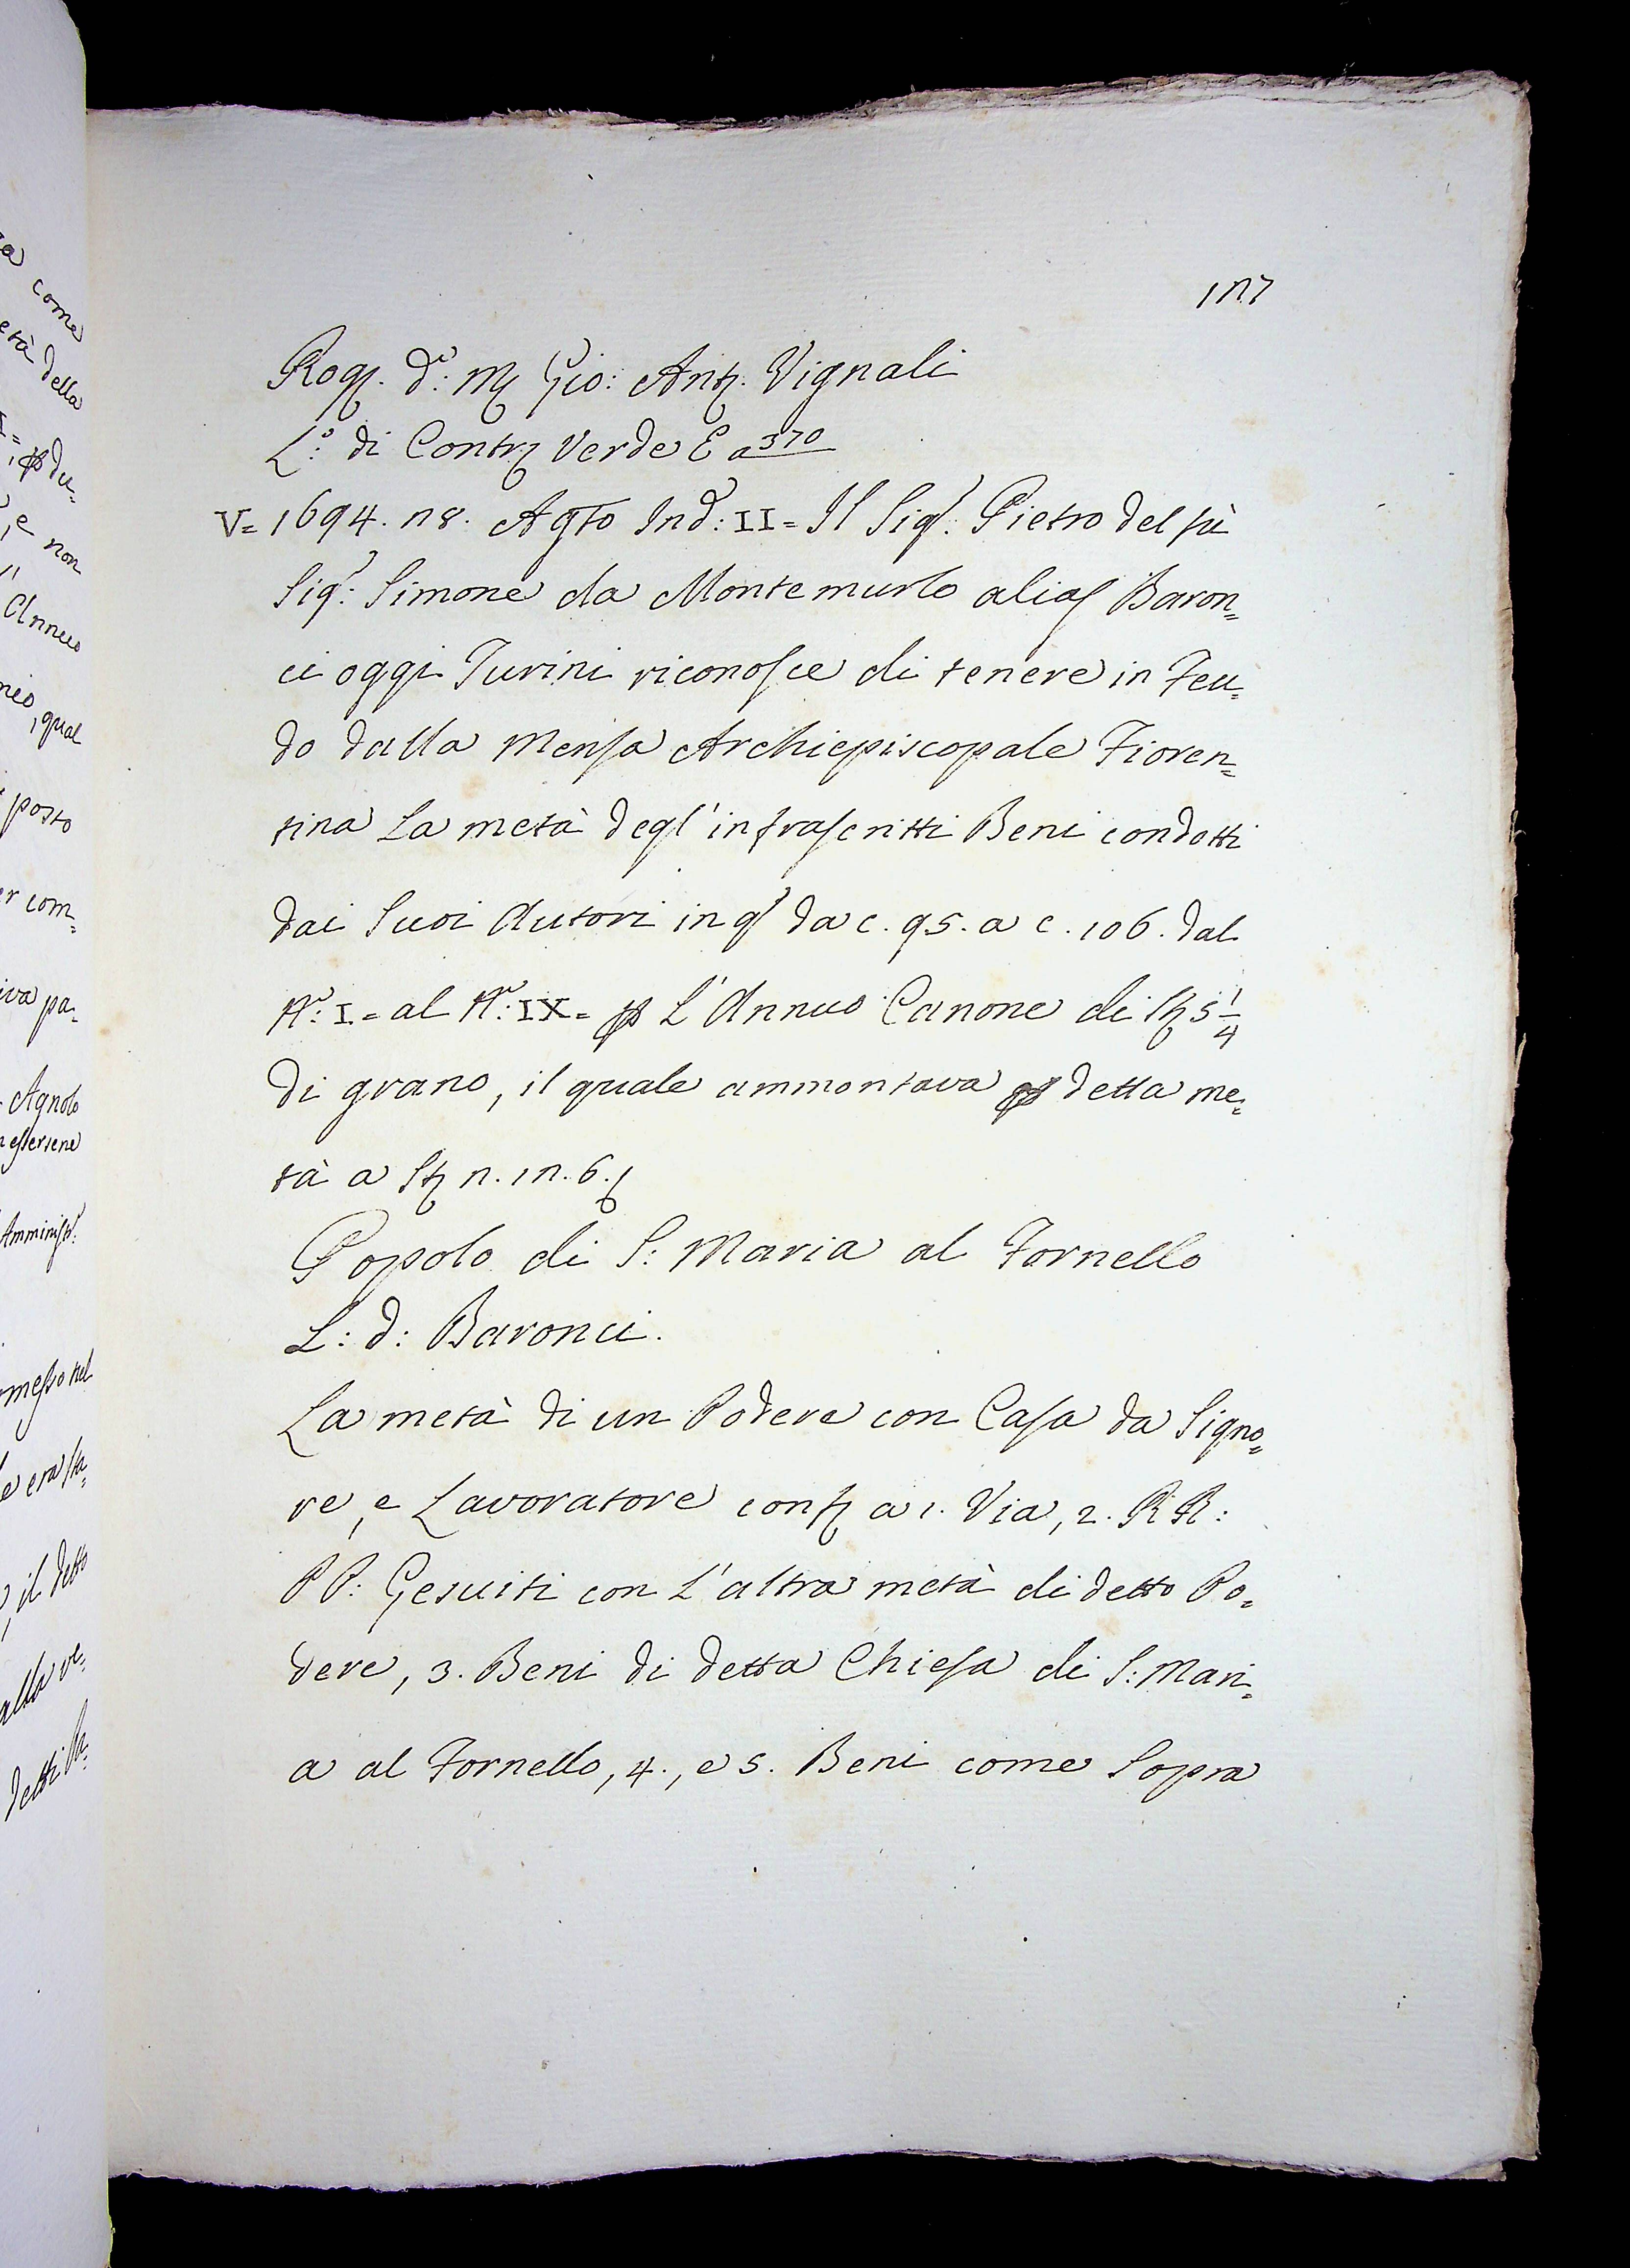 127
Rog. d.º: M Gio: Ant. Vignali
L.º: di Contr Verde E a 370
V= 1694. 28. Agto Ind: II= Il Sig.r: Pietro del fù
Sig.r: Simone da Montemurlo alias Baron=
ci oggi Turini riconosce di tenere in Feu=
do dalla Mensa Archiepiscopale Fioren=
tina La metà degl'infrascritti Beni condotti
dai Suoi Autori in q da c. 95. a c. 106. dal
N.º: I= al N.º: IX= p L'Annuo Canone di St 5 1/4
di grano, il quale ammontava p detta me=
tà a St 2. 12. 6.
Popolo di S: Maria al Fornello
L: d: Baronci.
La metà di un Podere con Casa da Signo=
re, e Lavoratore conf a 1. Via, 2. RR:
PP: Gesuiti con L'altra metà di detto Po=
dere, 3. Beni di detta Chiesa di S: Mari=
a al Fornello, 4., e 5. Beni come Sopra
a come
età della
du=
, e non
Annuo
, qual
posto
er com=
iva pa=
Agnolo
essersene
Amminist.
messo nel
e era sta=
, il detto
alla ve=